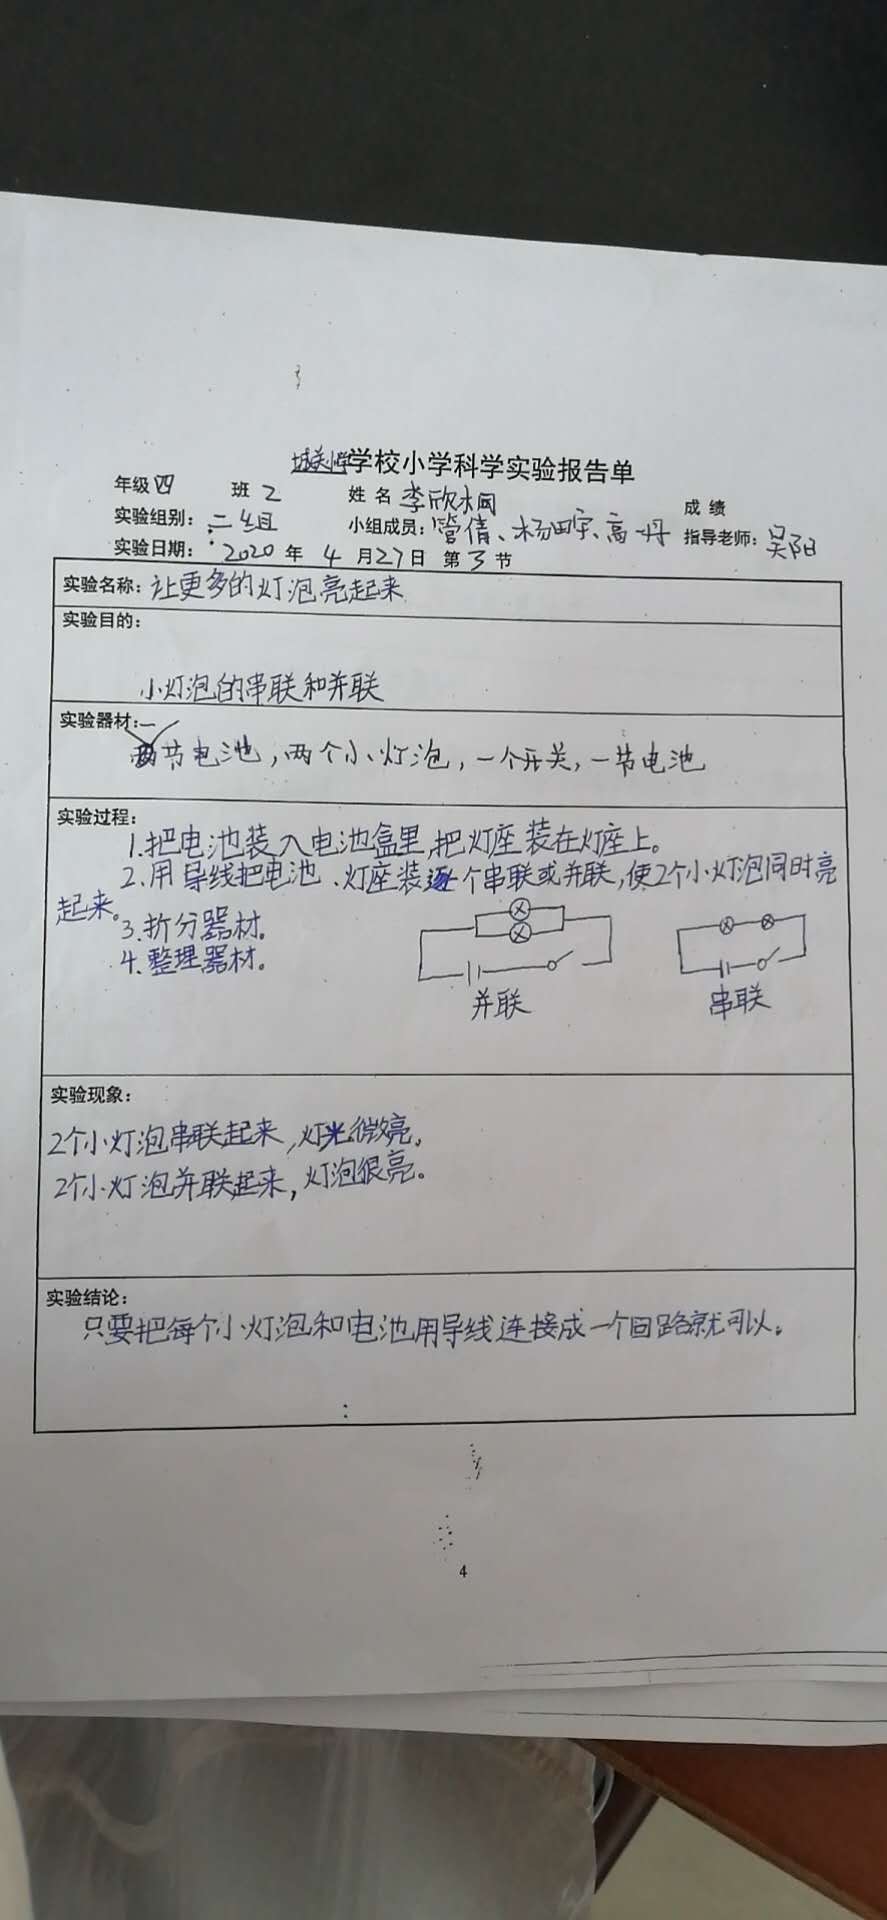 城关小学学校小学科学实验报告单
年级四 班2 姓名 李欣桐 成绩
实验组别：二组 小组成员：管倩、杨田宇、高丹 指导老师：吴阳
实验日期：2020年4月27日 第3节
实验名称：让更多的灯泡亮起来
实验目的：
小灯泡的串联和并联
实验器材：一
节电池，两个小灯泡，一个开关，一节电池
实验过程：
1.把电池装入电池盒里,把灯座装在灯座上。
2.用导线把电池、灯座装逐个串联或并联,使2个小灯泡同时亮
起来。
3.折分器材。
4.整理器材。
并联 串联
实验现象：
2个小灯泡串联起来,灯光微亮。
2个小灯泡并联起来,灯泡很亮。
实验结论：
只要把每个小灯泡和电池用导线连接成一个回路就可以。
4